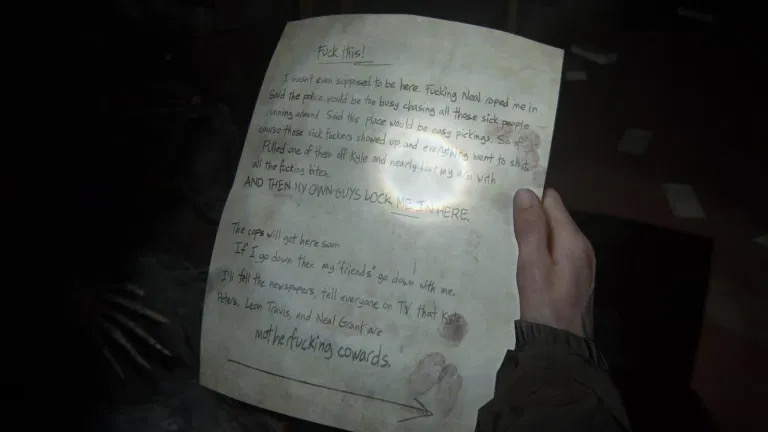 Fuck this!
I wasn't even supposed to be here. Fucking Neal roped me in
Said the police would be too busy chasing all these sick people
running around. Said this place would be easy pickings. So of
course those sick fuckers showed up and everything went to shit.
Pulled one of them off Kyle and nearly lost my arm with
all the fucking bites.
AND THEN MY OWN GUYS LOCK ME IN HERE.
The cops will get here soon
If I go down then my "friends" go down with me.
I'll tell the newspapers, tell everyone on TV that Kyle
Peters, Leon Travis, and Neal Grant are
motherfucking cowards.